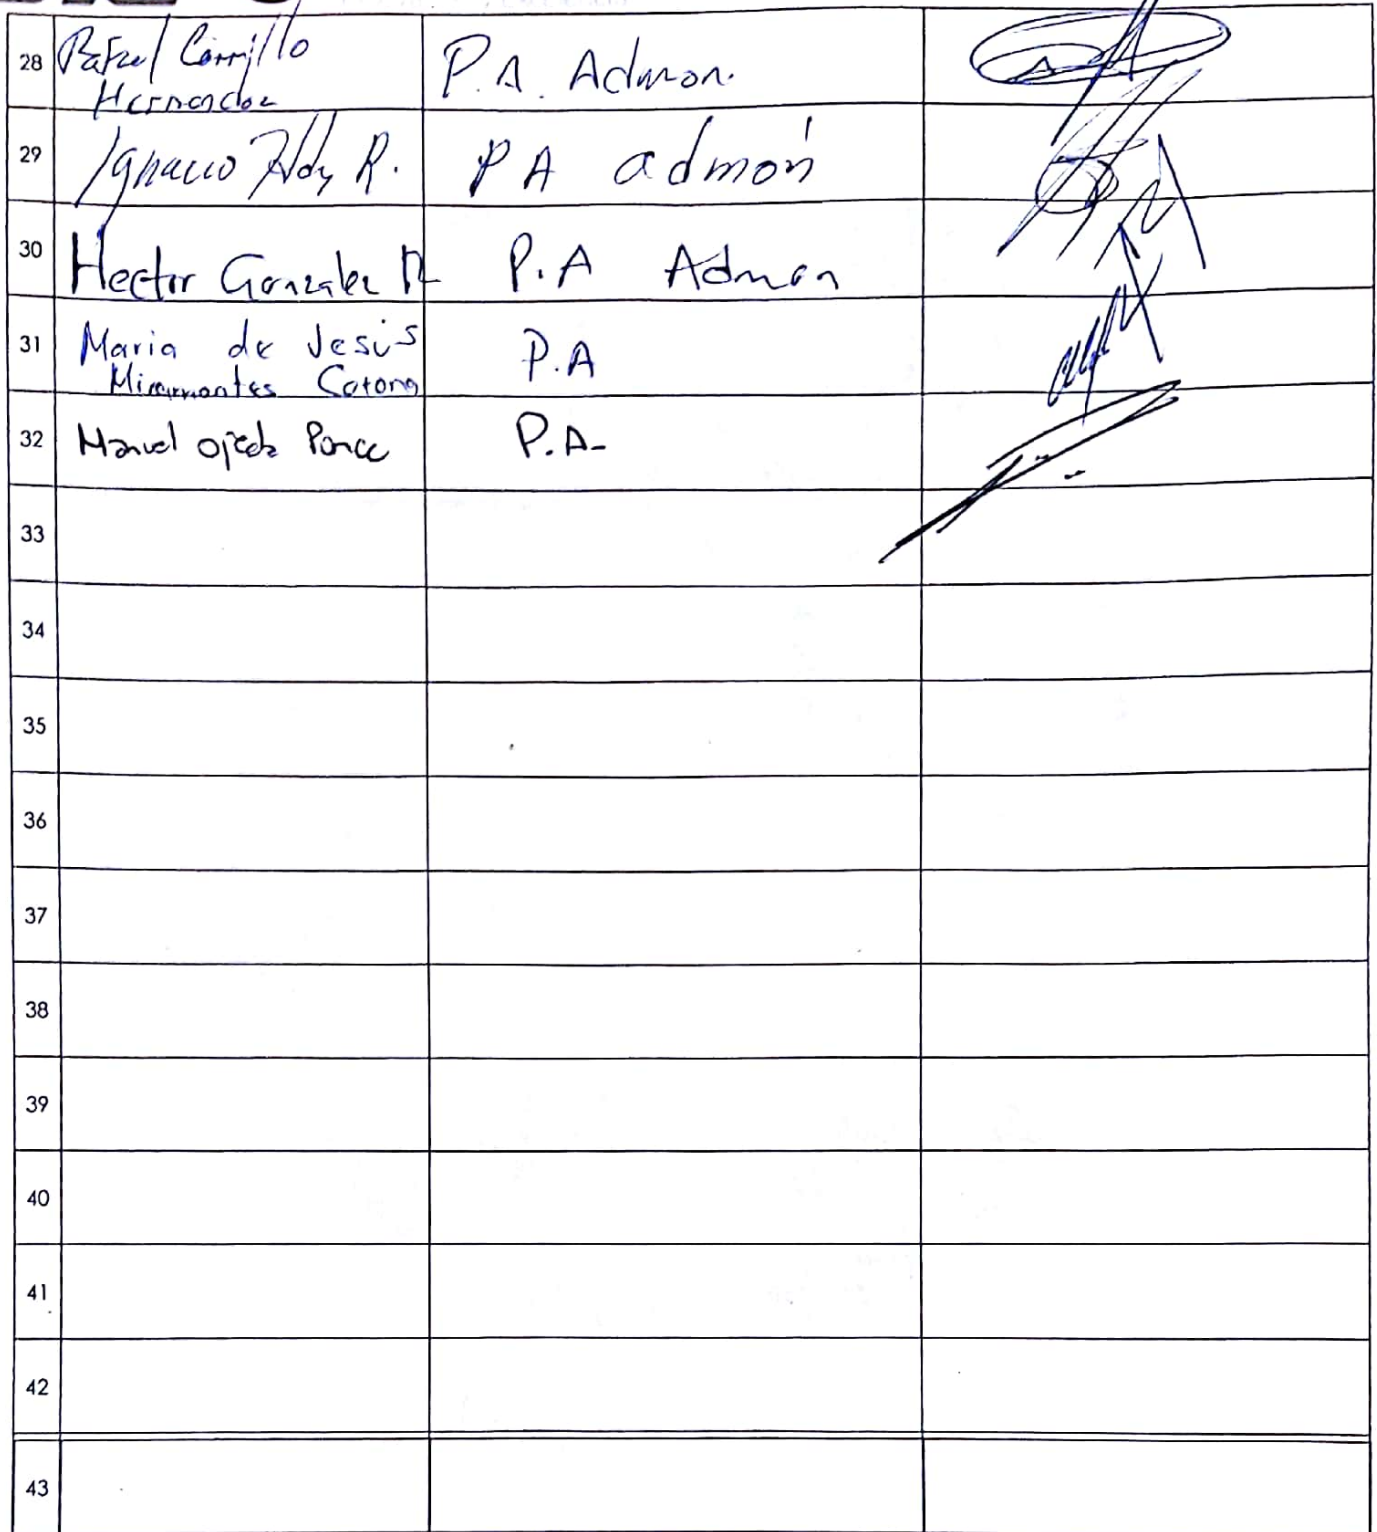 28 Rafael Carrillo P.A. Admon.
Hernandez
29 Ignacio R. P A admón
30 Hector Gonzalez R P.A Admon
31 Maria de Jesús P.A
Miramontes Cotona
32 Manuel Ojeda Ponce P.A-
33
34
35
36
37
38
39
40
41
42
43